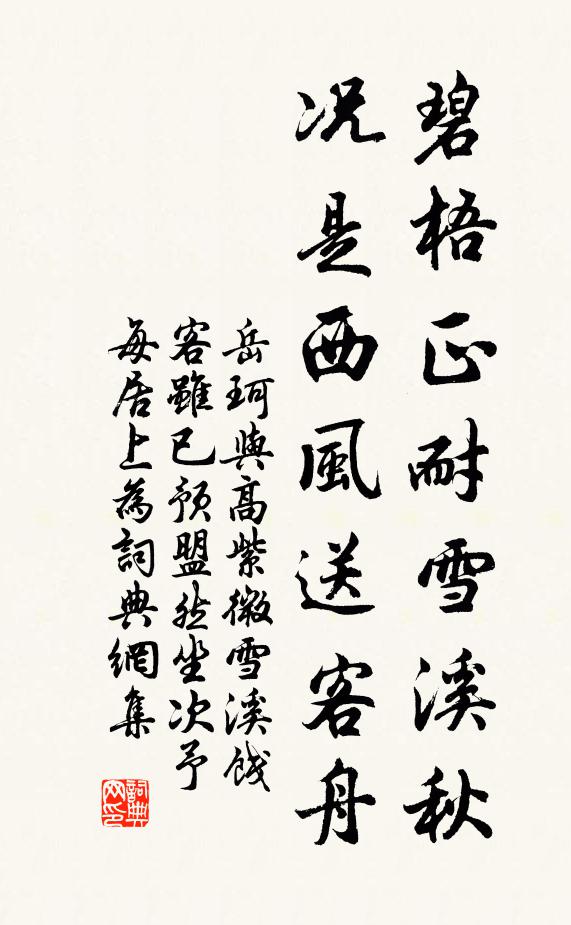 碧梧正耐雪溪秋
况是西風送客舟
岳珂與高紫微雪溪餞
客雖已预盟然坐次予
每居上為詞典網集
詞典
网印